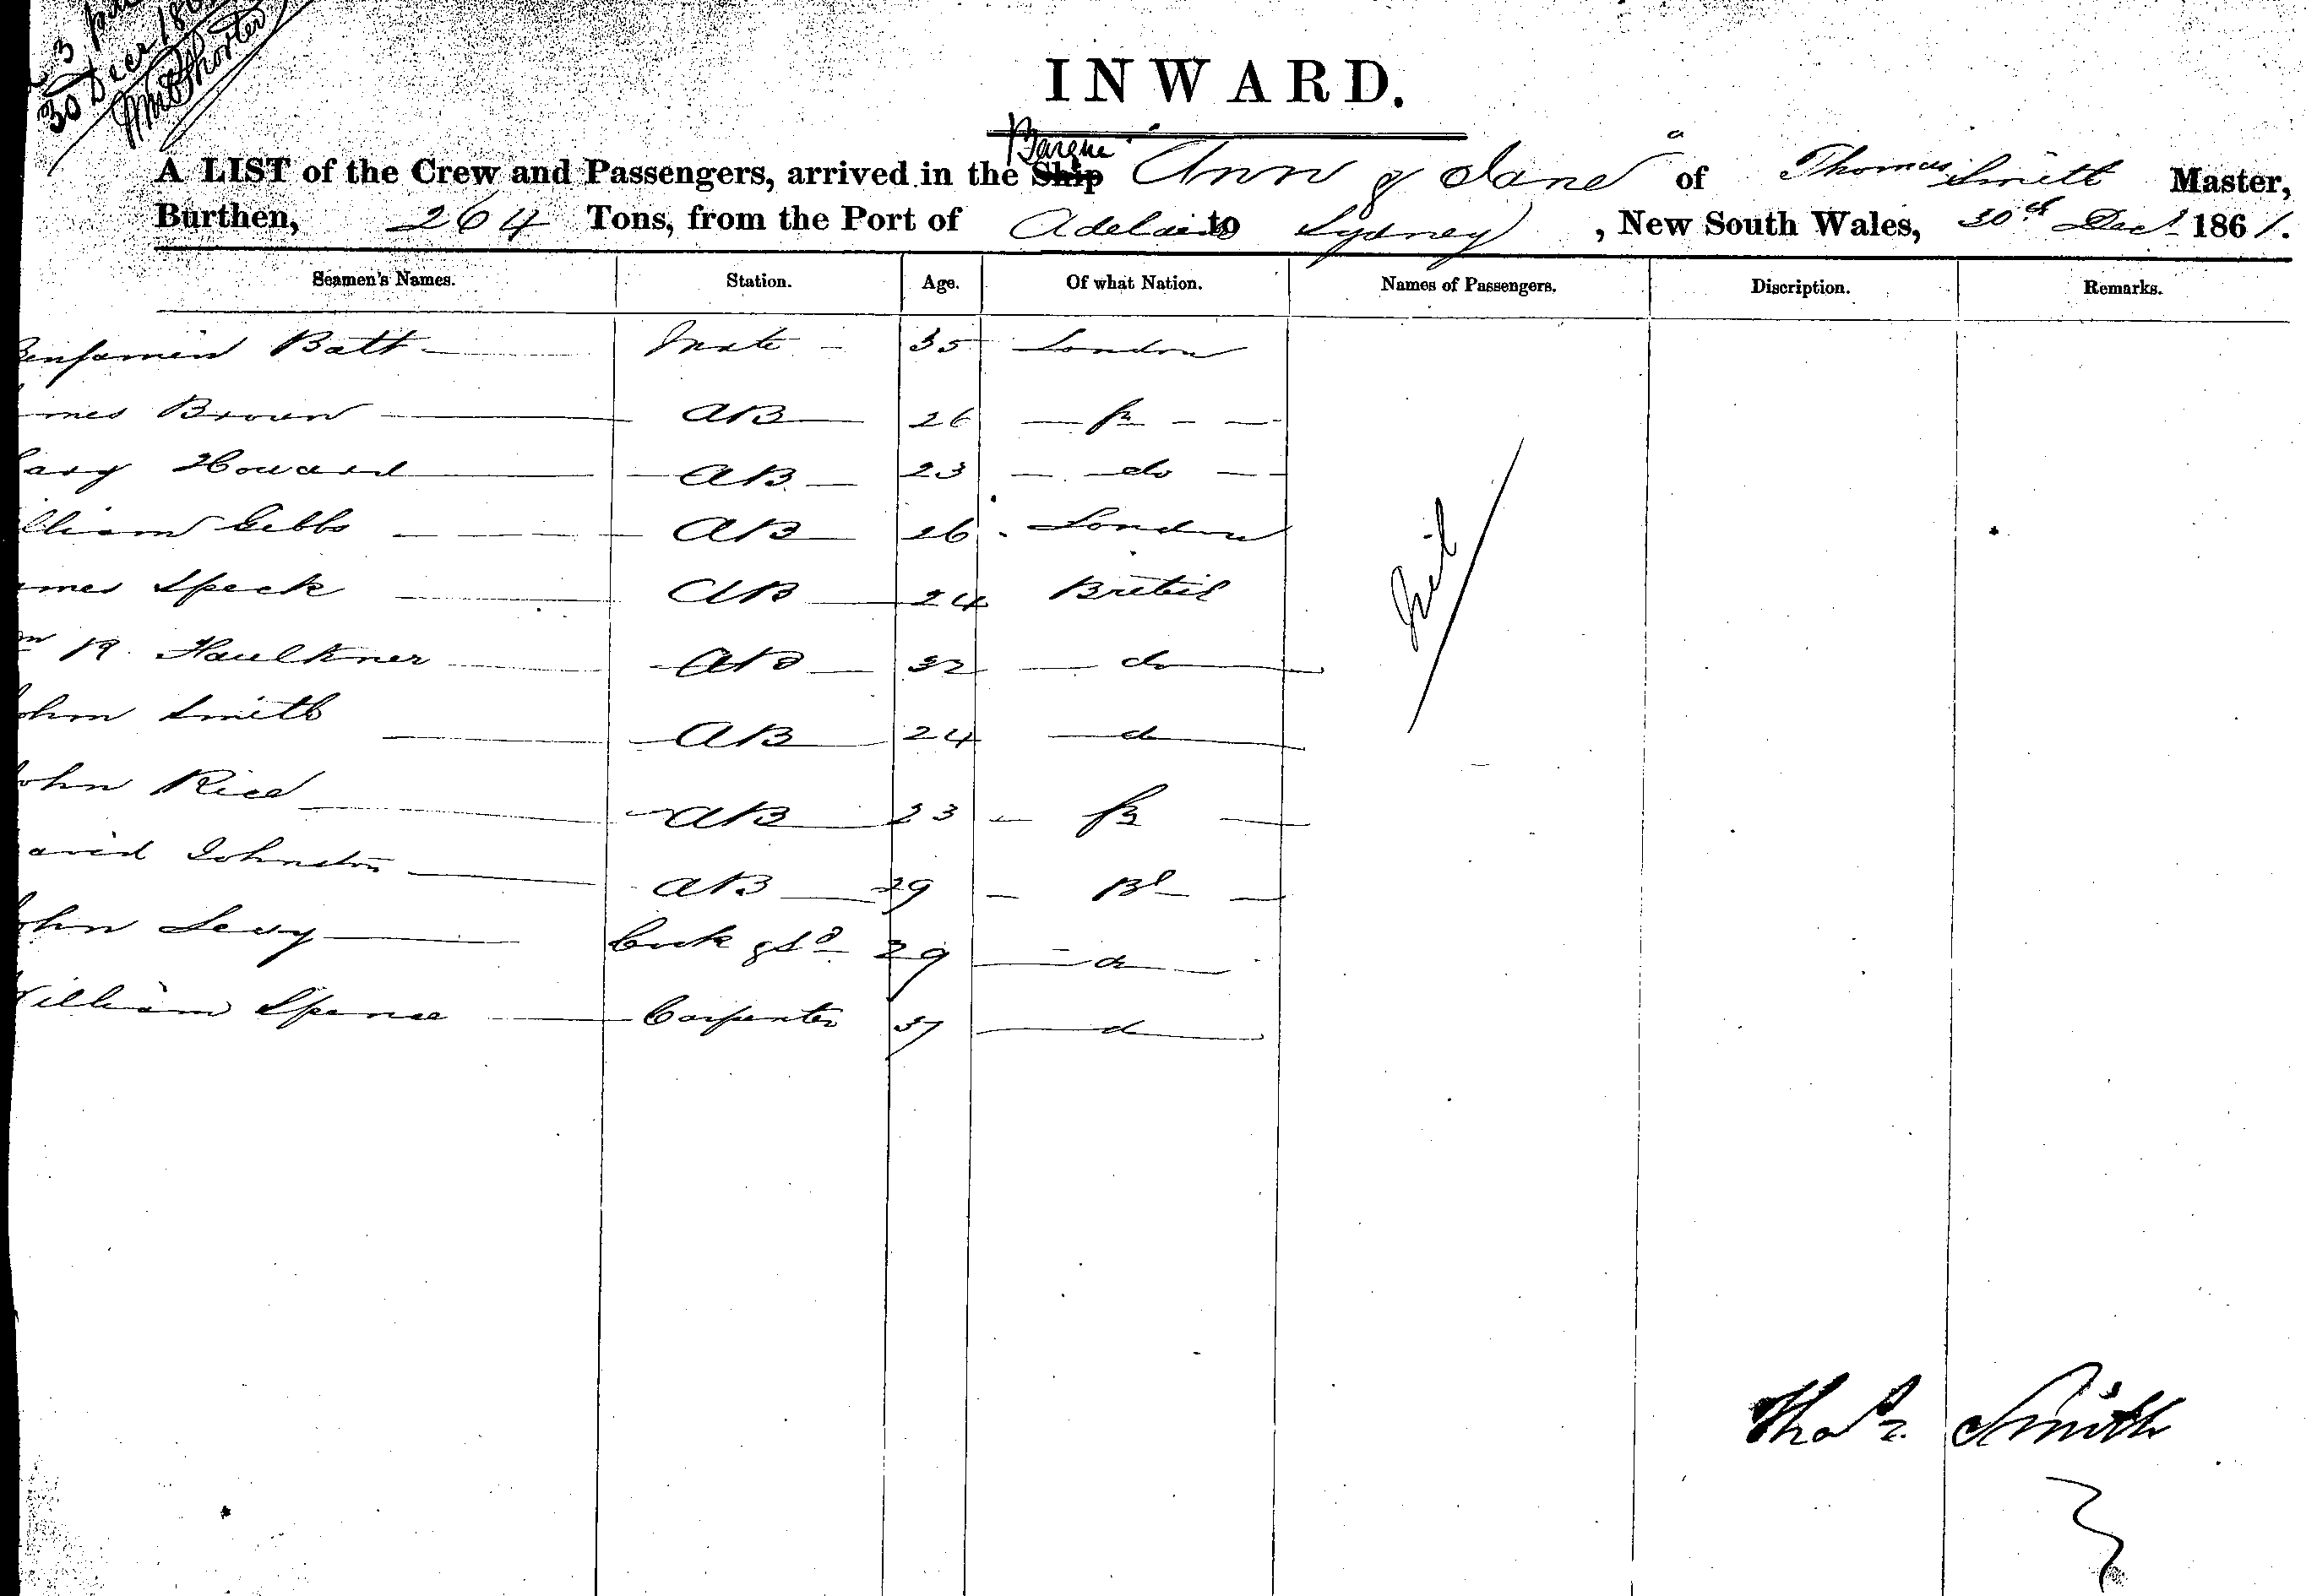 3
30 Decr 186
Wm Shorter
INWARD.
Barque
A LIST of the Crew and Passengers, arrived in the Ship Ann & Jane of Thomas Smith Master,
Burthen, 264 Tons, from the Port of Adelaide to Sydney, New South Wales, 30th Decr 1861.
Seamen's Names. Station. Age. Of what Nation. Names of Passengers. Discription. Remarks.
Benjamin Batt Mate 35 London
mes Brown AB 26
Howard AB 23 do
lliam Gibbs AB 26 London
ames Speck AB 24 British
m R. Haulkner AB 32 do
John Smith AB 24 d
Nil
John Rice AB 23
avid Johnston AB 29 Bh
John Levy Cook & Sd 29 do
William Spence Carpenter 37 d
Thos Smith